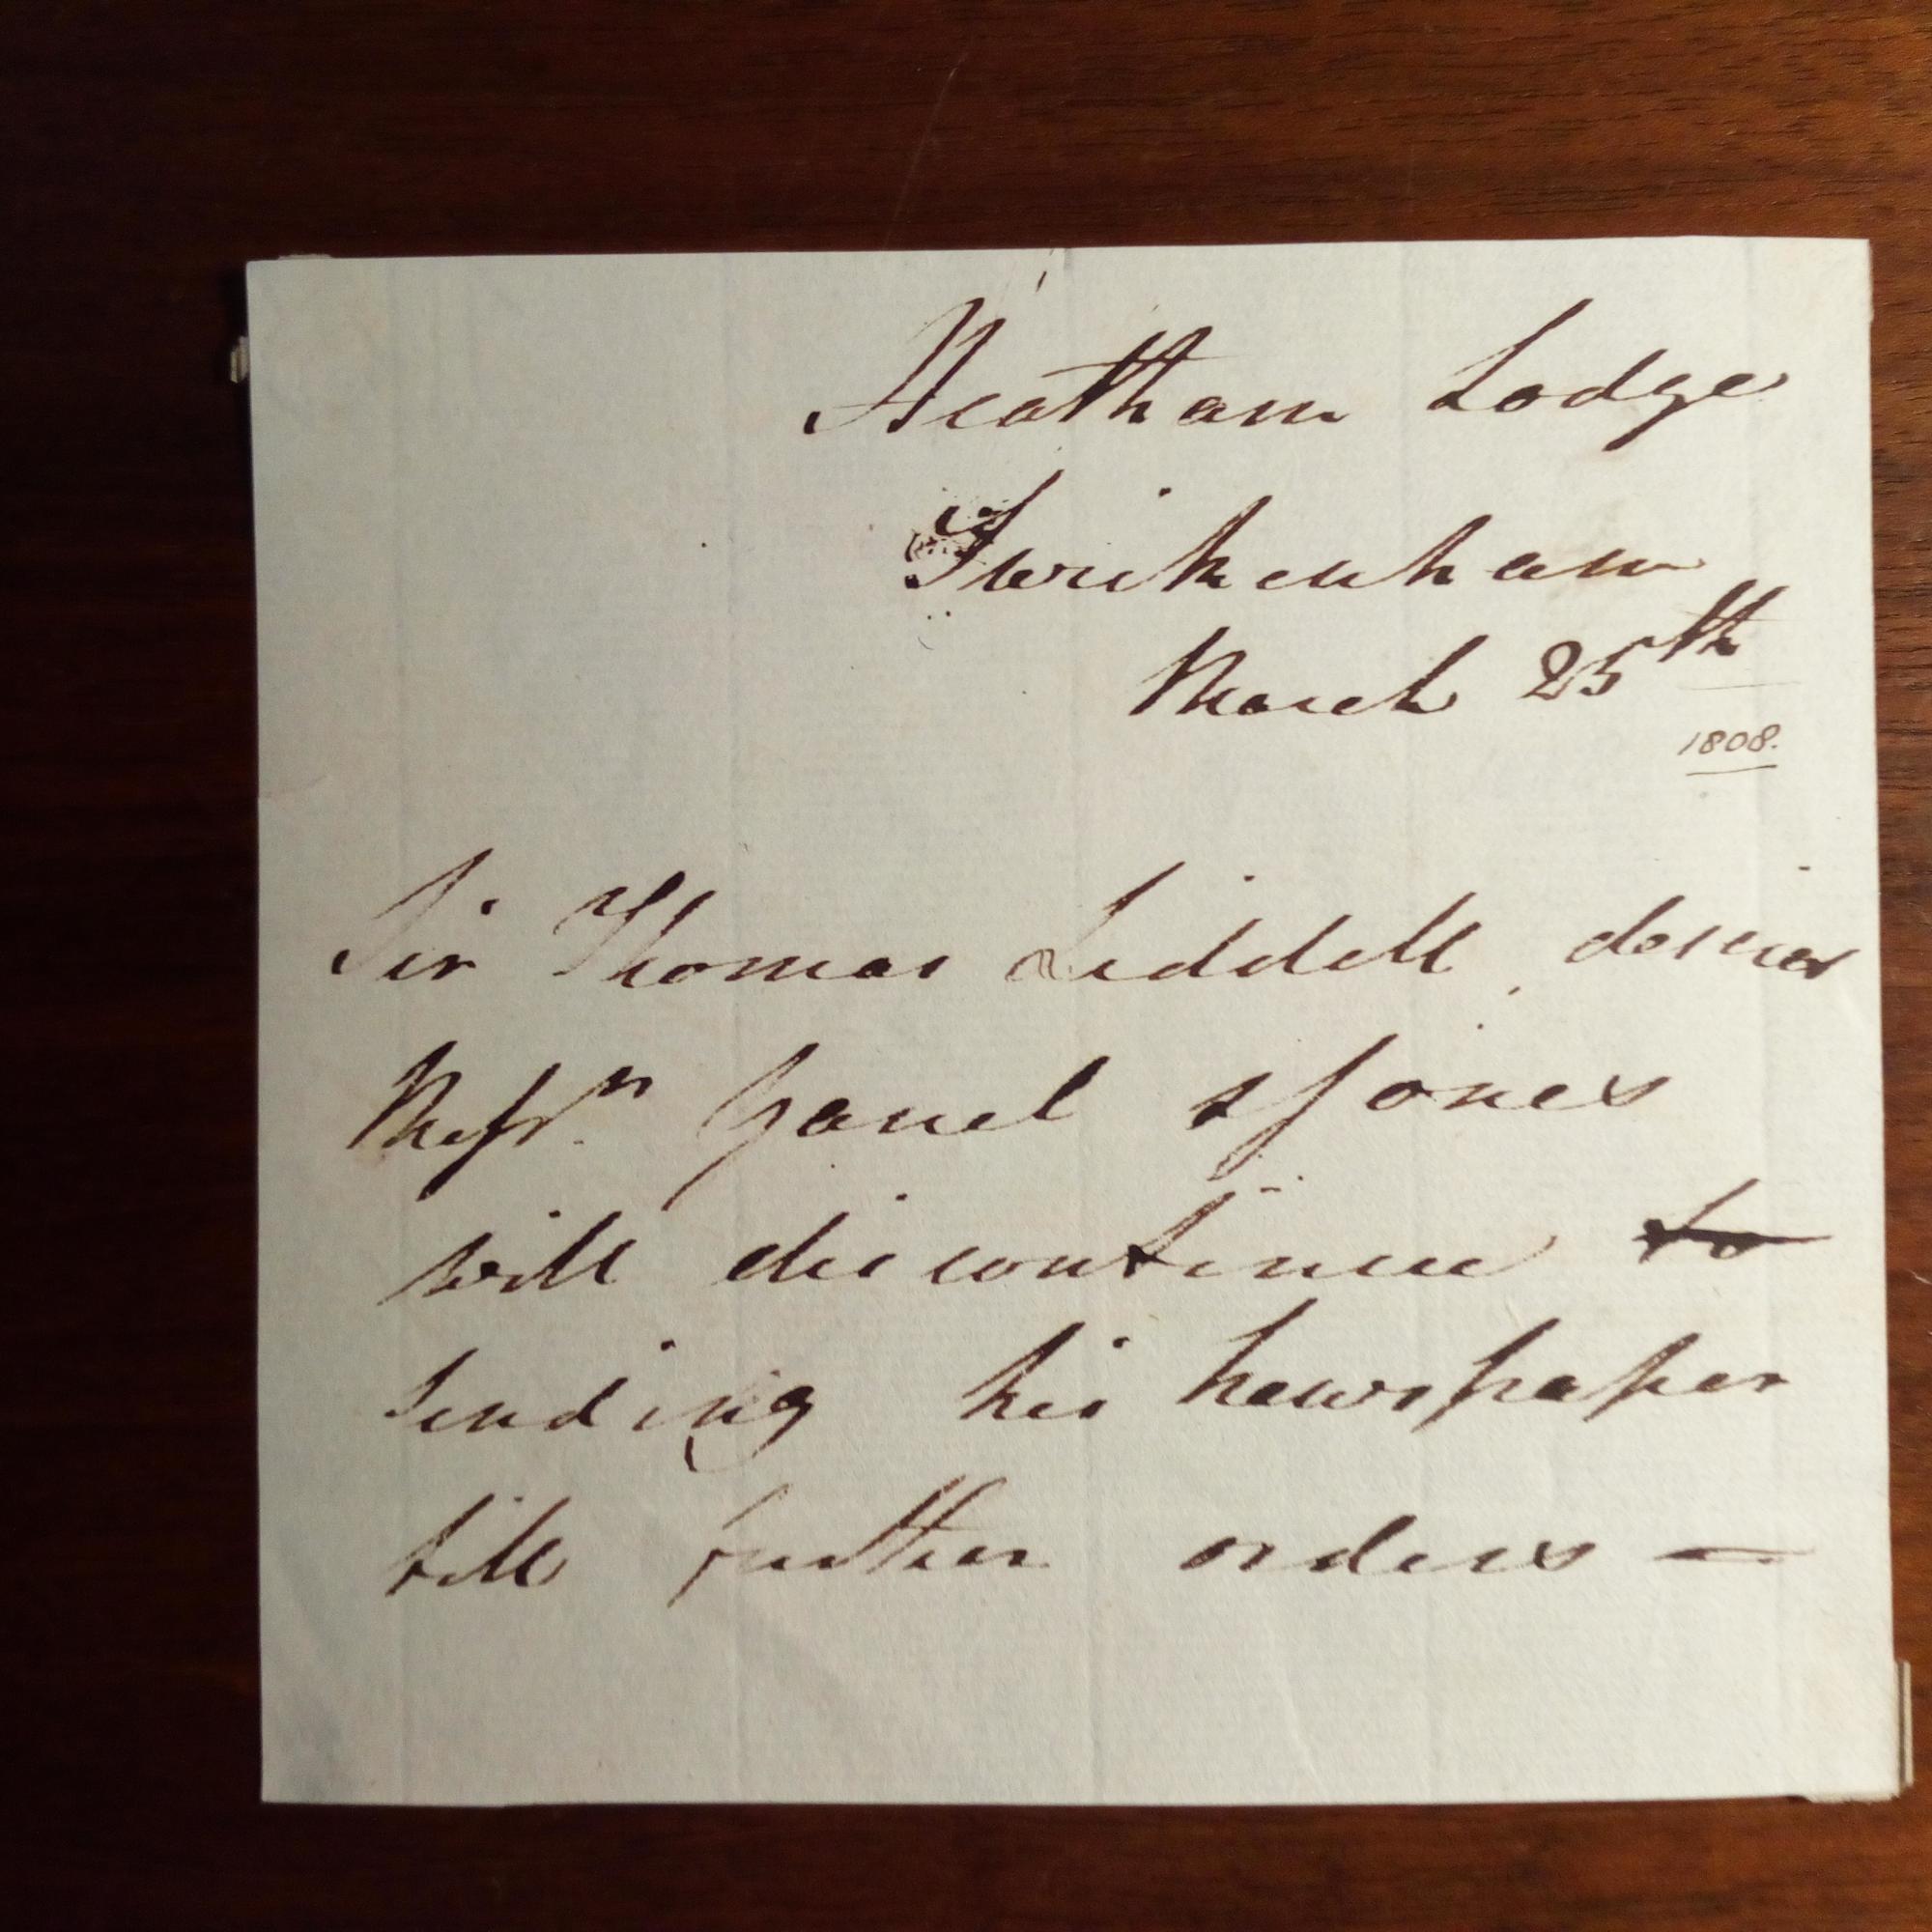 Heatham Lodge
Twikenham
March 25th
1808.
Sir Thomas Liddell desires
Messrs & Jones
will discontinue to
sending his newspaper
till further orders —